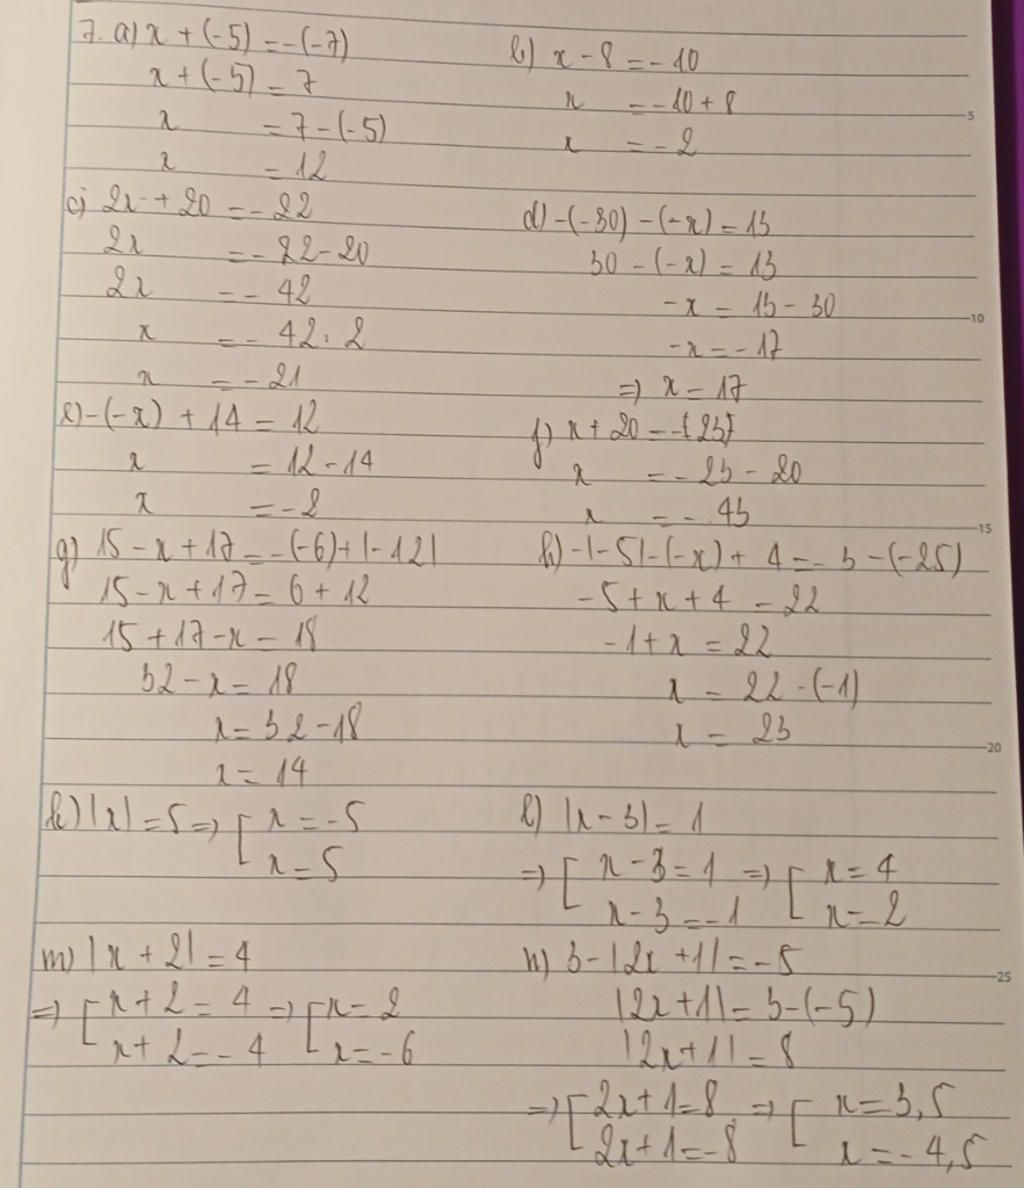 7. a) x + (-5) = -(-7)
x + (-5) = 7
x = 7 - (-5)
x = 12
b) x - 8 = -10
x = -10 + 8
x = -2
c) 2x + 20 = -22
2x = -22 - 20
2x = -42
x = -42 : 2
x = -21
d) -(-30) - (-x) = 13
30 - (-x) = 13
-x = 13 - 30
-x = -17
=> x = 17
e) -(-x) + 14 = 12
x = 12 - 14
x = -2
f) x + 20 = -(23)
x = -23 - 20
x = -43
g) 15 - x + 17 = -(-6) + |-12|
15 - x + 17 = 6 + 12
15 + 17 - x = 18
32 - x = 18
x = 32 - 18
x = 14
h) -|-5| - (-x) + 4 = -3 - (-25)
-5 + x + 4 = 22
-1 + x = 22
x = 22 - (-1)
x = 23
k) |x| = 5 => [ x = -5
x = 5
l) |x - 3| = 1
=> [ x - 3 = 1 => [ x = 4
x - 3 = -1 x = 2
m) |x + 2| = 4
=> [ x + 2 = 4 => [ x = 2
x + 2 = -4 x = -6
n) 3 - |2x + 1| = -5
|2x + 1| = 3 - (-5)
|2x + 1| = 8
=> [ 2x + 1 = 8 => [ x = 3,5
2x + 1 = -8 x = -4,5
5
10
15
20
25